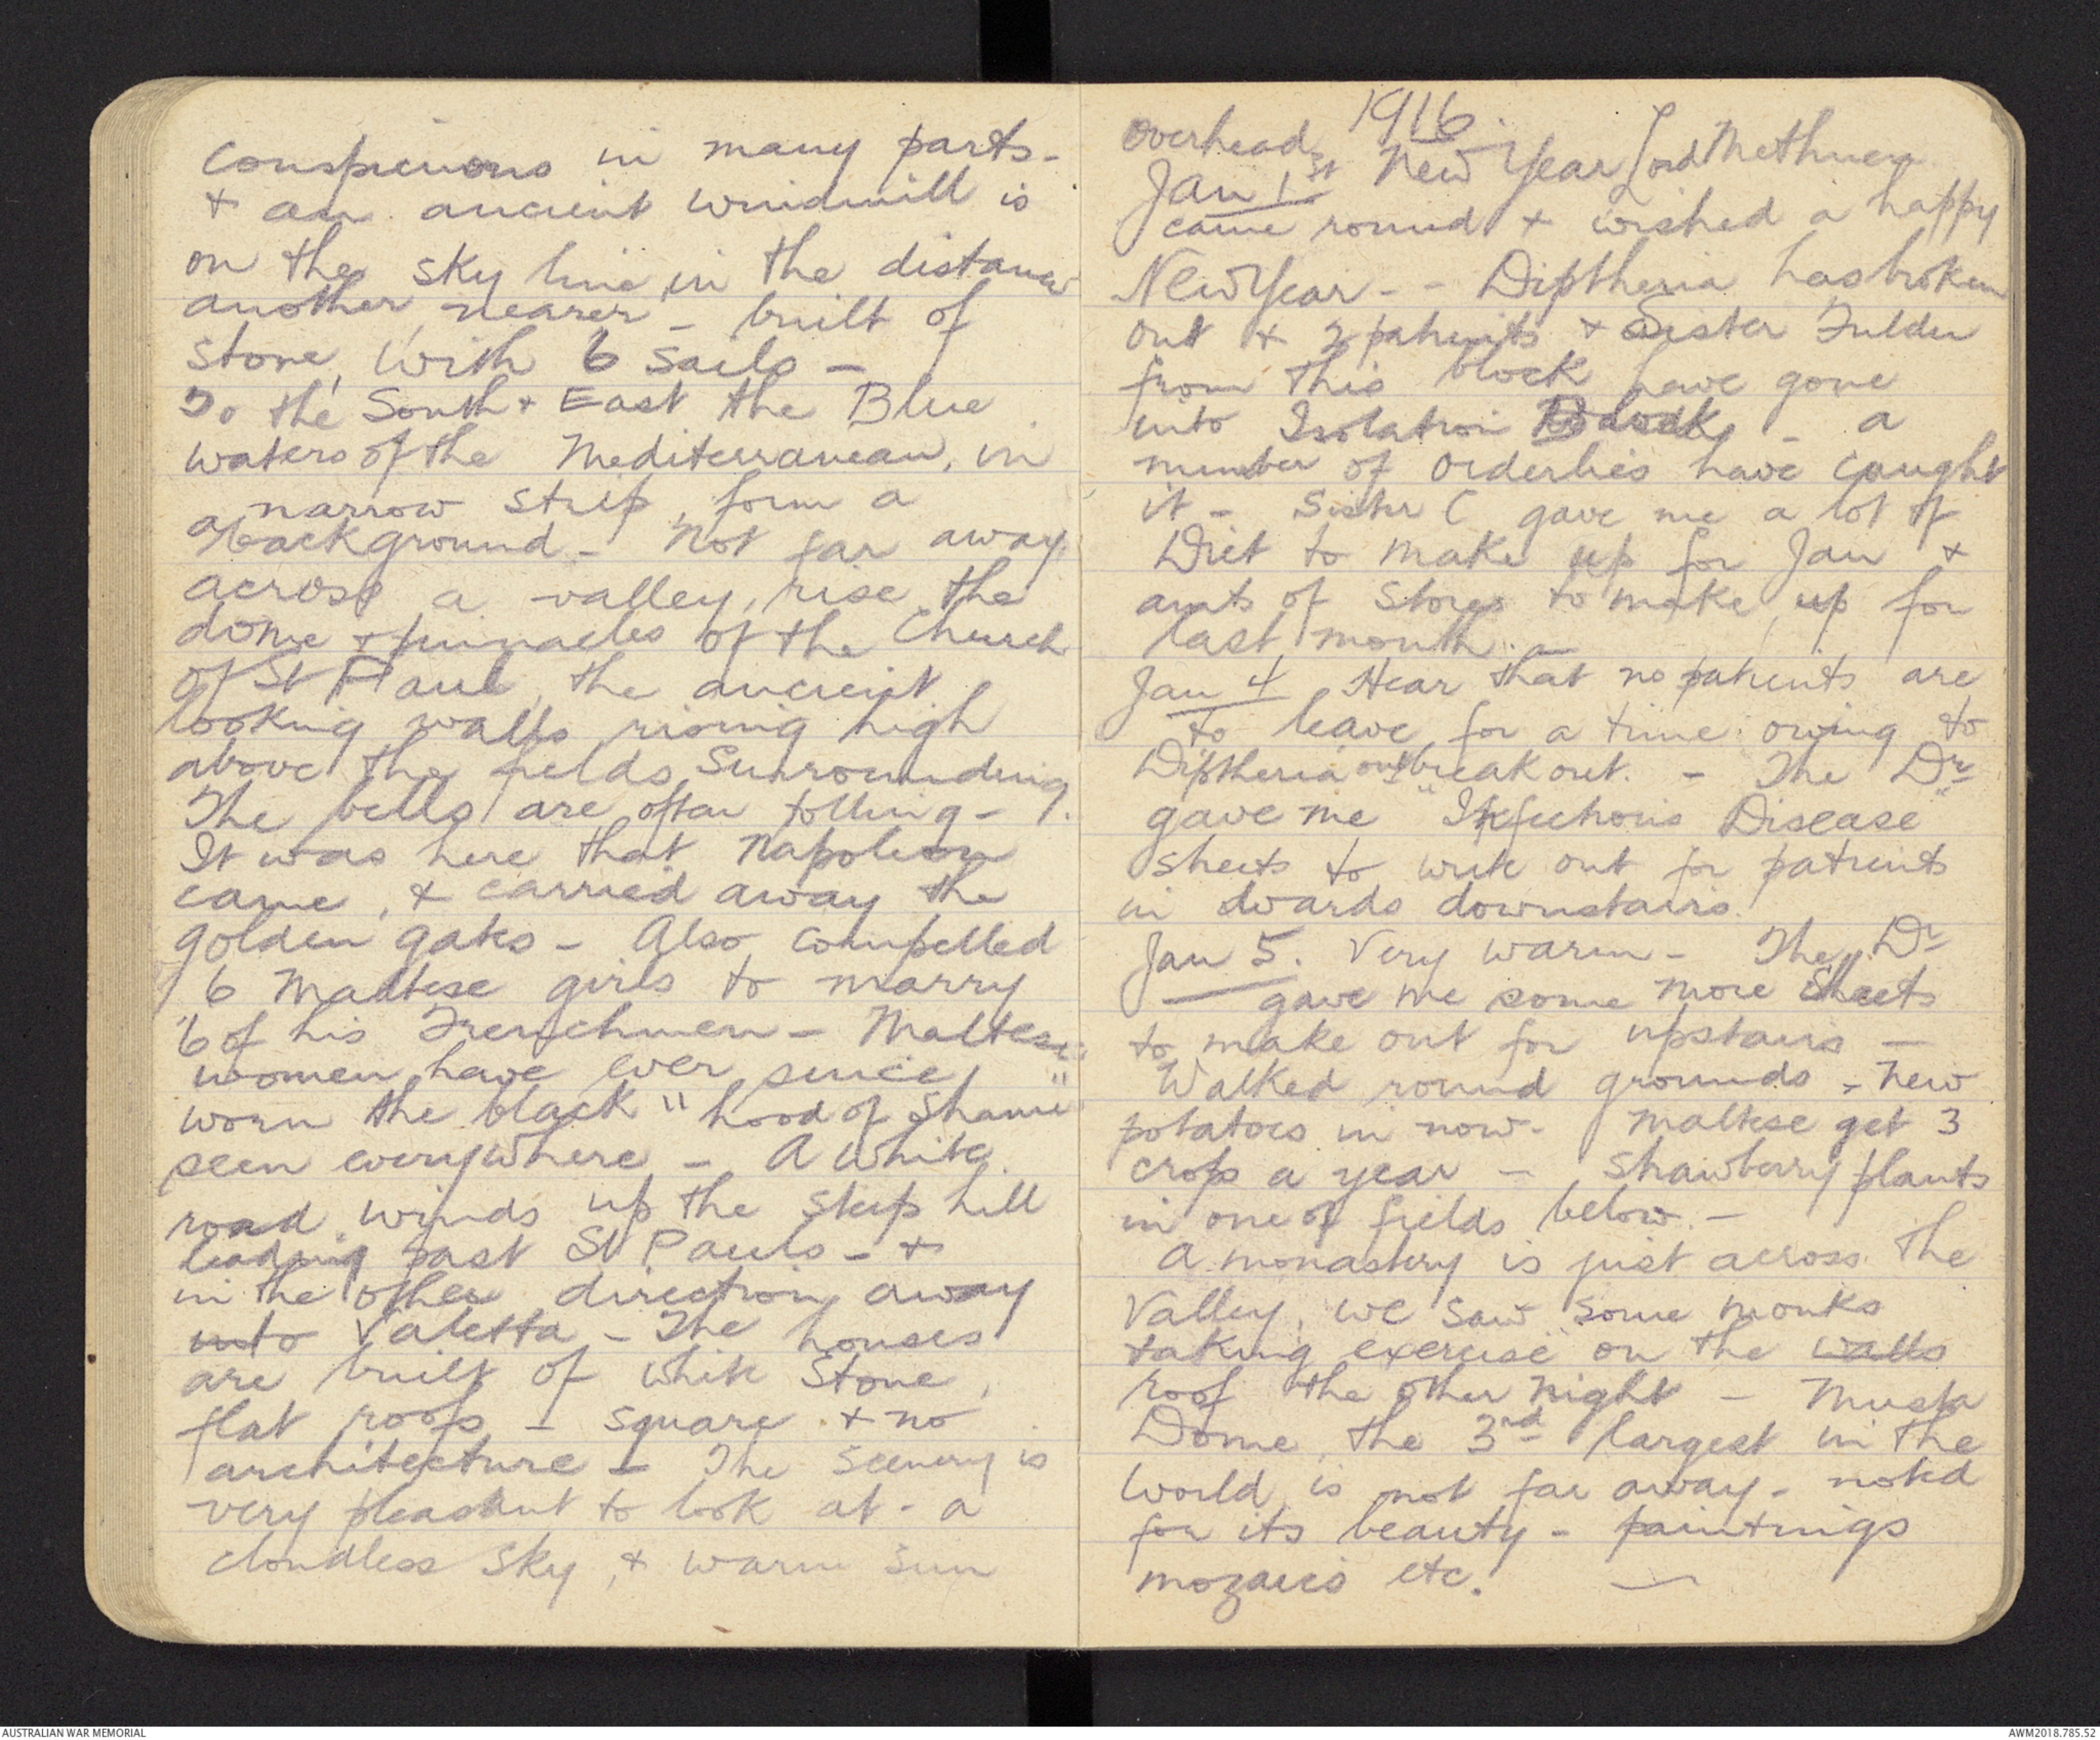 conspicuous in many parts -
+ an ancient windmill is
on the sky line in the distance
another nearer - built of
stone, with 6 sails -
To the South + East the Blue
waters of the Mediterranean, in
a narrow strip, form a
background - Not far away
across a valley, rise the
dome + pinnacles of the Church
of St Paul, the ancient
looking walls rising high
above the fields surrounding.
The bells are often tolling -
It was here that Napoleon
came, + carried away the
golden gates - Also compelled
6 Maltese girls to marry
6 of his Frenchmen - Maltese
women have ever since
worn the black "hood of shame"
seen everywhere - A white
road winds up the steep hill
leading past St Pauls - +
in the other direction away
into Valetta - The houses
are built of white stone,
flat roofs - square + no
architecture - The scenery is
very pleasant to look at - a
cloudless sky, + warm sun
overhead
1916.
Jan 1st New Year Lord Methuen
came round + wished a happy
New Year - - Diptheria has broken
out + 2 patients + Sister
from this block have gone
into Isolation Block - a
number of orderlies have caught
it - Sister C gave me a lot of
Diet to make up for Jan +
amts of Stores to make up for
last month. -
Jan 4 Hear that no patients are
to leave for a time owing to
Diptheria outbreak out. - The Dr
gave me "Infectious Disease"
sheets to write out for patients
in wards downstairs.
Jan 5. Very warm - The Dr
gave me some more Sheets
to make out for upstairs -
Walked round grounds - new
potatoes in now - Maltese get 3
crops a year - Strawberry plants
in one of fields below -
A monastery is just across the
Valley, we saw some monks
taking exercise on the walls
roof the other night - Musta
Dome, the 3rd largest in the
World is not far away - noted
for its beauty - paintings
mozaics etc. -
AUSTRALIAN WAR MEMORIAL
AWM2018.785.52